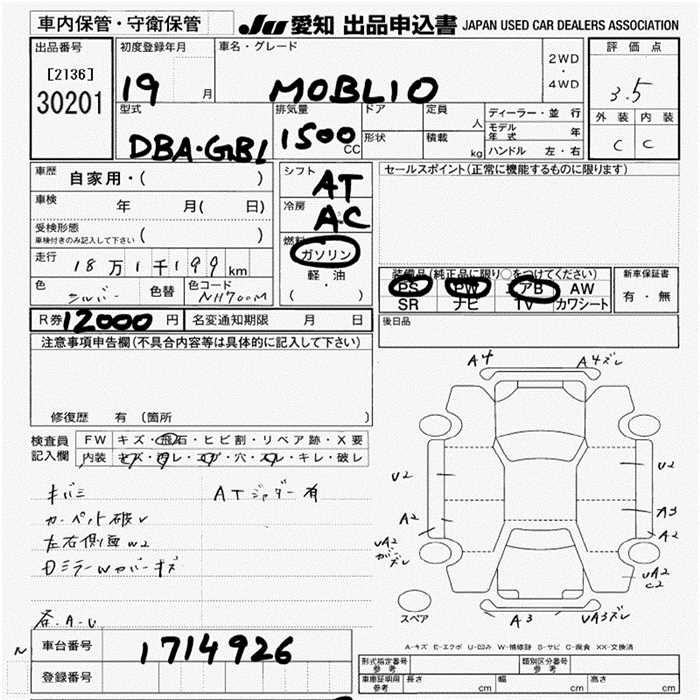 車内保管・守衛保管 JU 愛知 出品申込書 JAPAN USED CAR DEALERS ASSOCIATION
出品番号 初度登録年月 車名・グレード 2WD・4WD 評価点
[2136] 30201 19 月 MOBLIO 3.5
型式 排気量 ドア 定員 人 ディーラー・並行 外装 内装
DBA・GB1 1500 CC 形状 積載 kg モデル年式 年 C C
ハンドル 左・右
車歴 自家用・( ) シフト AT セールスポイント(正常に機能するものに限ります)
車検 年 月( 日) 冷房 AC
受検形態 ( )
車検付きのみ記入して下さい
燃料 ガソリン
走行 18万1千199km 軽・油
( )
装備品(純正品に限り○をつけてください) 新車保証書
色 シルバー 色替 色コード NH700M PS PW アB AW 有・無
SR ナビ TV カワシート
R券 12000 円 名変通知期限 月 日 後日品
注意事項申告欄(不具合内容等は具体的に記入して下さい)
修復歴 有 (箇所 )
検査員記入欄 FW キズ・飛石・ヒビ割・リペア跡・X要
内装 キズ・凹レ・コゲ・穴・スレ・キレ・破レ
A4 A4ズレ
キバミ ATジャダー有
カーペット破レ
左右側面W2
Dミラーウカバーキズ
各.A.U
U2 U2
A2 A3
A2
UA2
ガズレ
UA2
C2
スペア A3 UA3ズレ
A-キズ E-エクボ U-凹み W-補修跡 S-サビ C-腐食 XX-交換済
N 車台番号 1714926
登録番号
形式指定番号 参考 類別区分番号 参考
車庫証明用 参考 長さ cm 幅 cm 高さ cm